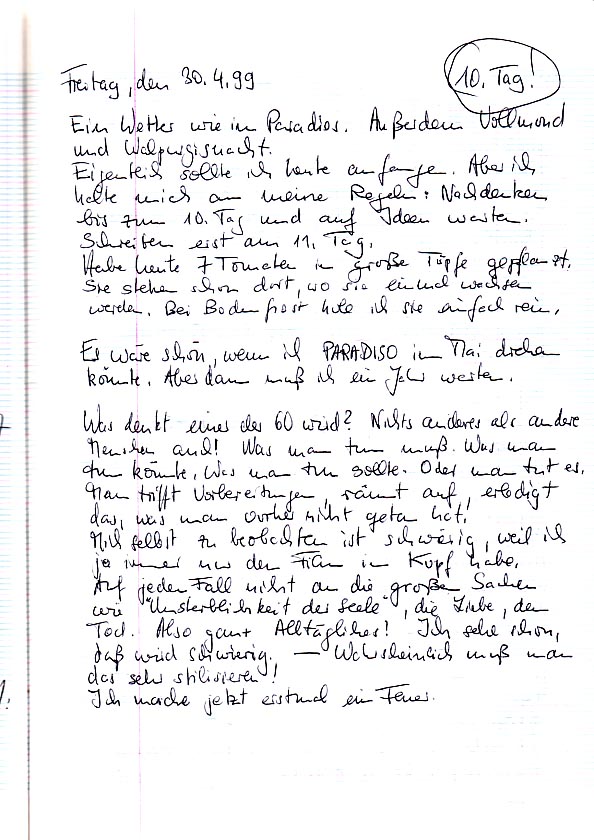 Freitag, den 30.4.99
10. Tag!
Ein Wetter wie im Paradies. Außerdem Vollmond
und Walpurgisnacht.
Eigentlich sollte ich heute anfangen. Aber ich
halte mich an meine Regeln: Nachdenken
bis zum 10. Tag und auf Ideen warten.
Schreiben erst am 11. Tag.
Habe heute 7 Tomaten in große Töpfe gepflanzt.
Sie stehen schon dort, wo sie einmal wachsen
werden. Bei Bodenfrost hole ich sie einfach rein.
Es wäre schön, wenn ich PARADISO im Mai drehen
könnte. Aber dann muß ich ein Jahr warten.
Was denkt einer der 60 wird? Nichts anderes als andere
Menschen auch! Was man tun muß. Was man
tun könnte. Was man tun sollte. Oder man tut es.
Man trifft Vorbereitungen, räumt auf, erledigt
das, was man vorher nicht getan hat.
Mich selbst zu beobachten ist schwierig, weil ich
ja immer nur den Film im Kopf habe.
Auf jeden Fall nicht an die großen Sachen
wie "Unsterblichkeit der Seele", die Liebe, den
Tod. Also ganz Alltägliches! Ich sehe schon,
daß wird schwierig. — Wahrscheinlich muß man
das sehr stilisieren!
Ich mache jetzt erstmal ein Feuer.